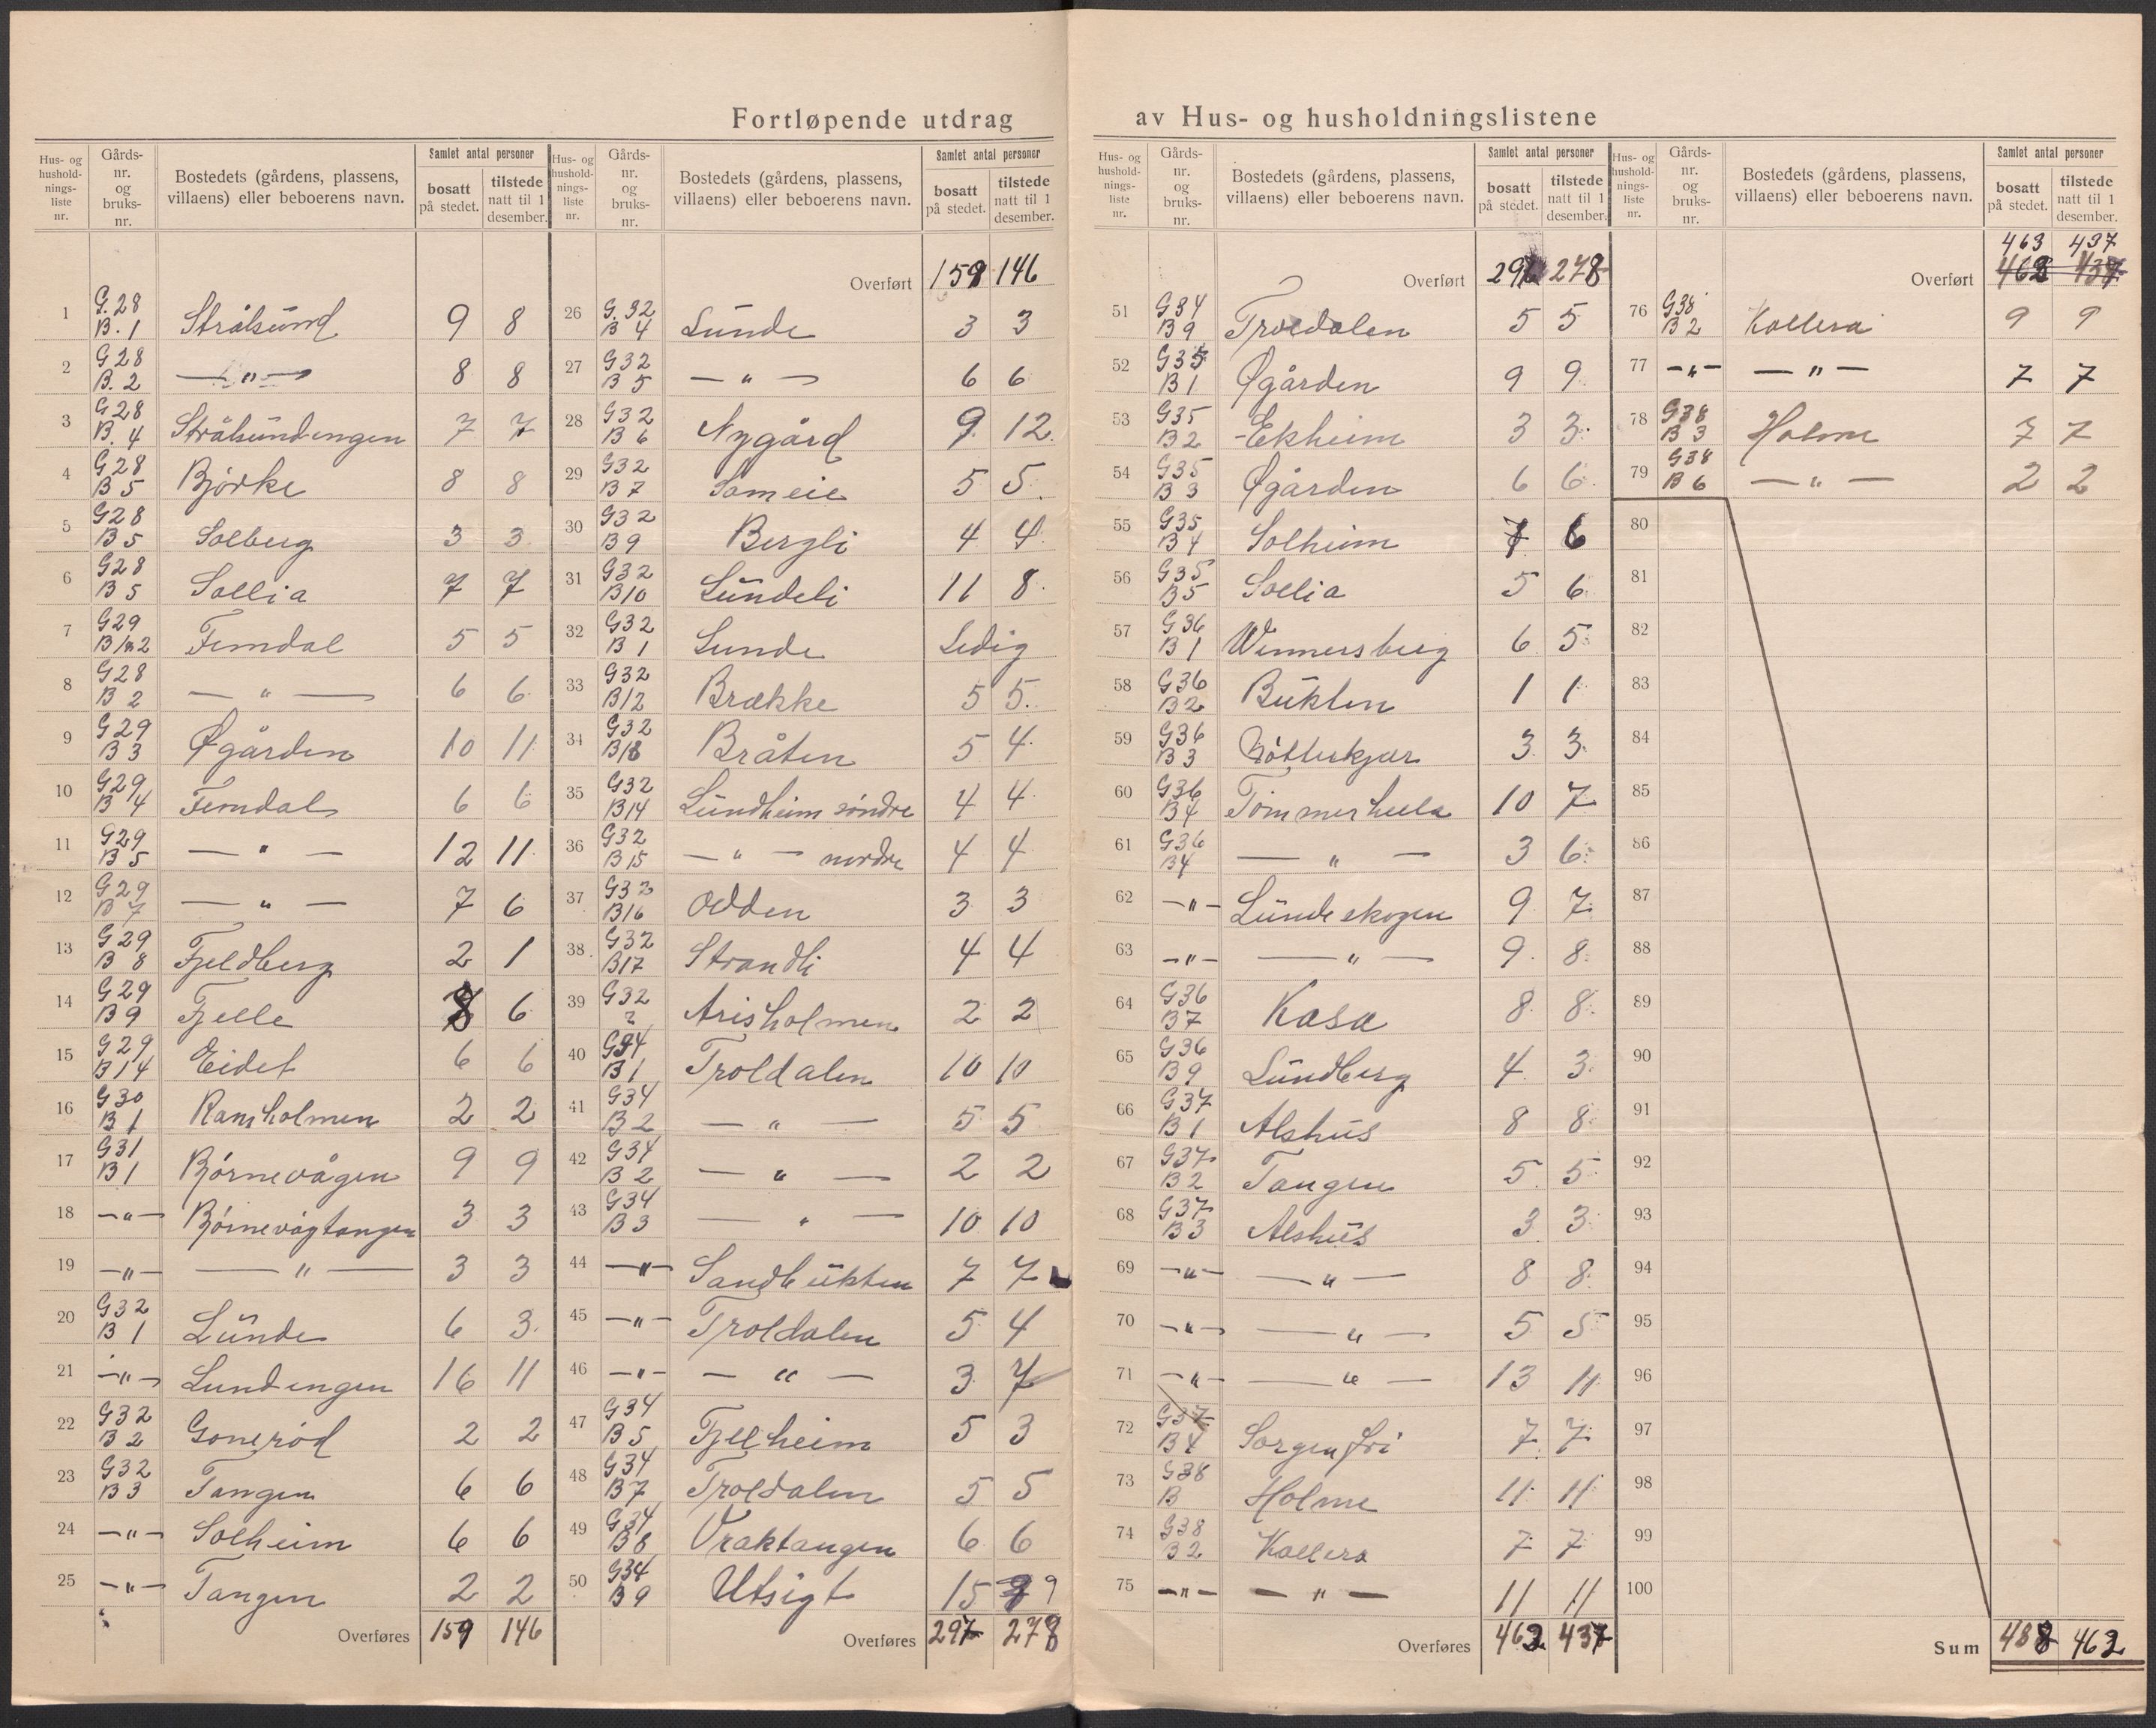 Fortløpende utdrag av Hus- og husholdningslistene
Hus- og hushold-nings-liste nr. | Gårds-nr. og bruks-nr. | Bostedets (gårdens, plassens, villaens) eller beboerens navn. | Samlet antal personer bosatt på stedet. | tilstede natt til 1 desember.
1 G.28 B.1 Strålsund 9 8
2 G28 B.2 —„— 8 8
3 G28 B.4 Strålsundengen 7 7
4 G28 B5 Bjørke 8 8
5 G28 B5 Solberg 3 3
6 G28 B5 Sollia 7 7
7 G29 Femdal 5 5
8 G28 B2 —„— 6 6
9 G29 B3 Øgården 10 11
10 G29 B4 Femdal 6 6
11 G29 B5 —„— 12 11
12 G29 B7 —„— 7 6
13 G29 B8 Fjeldberg 2 1
14 G29 B9 Fjelle 6
15 G29 B14 Eidet 6 6
16 G30 B1 Ramsholmen 2 2
17 G31 B1 Bjørnevågen 9 9
18 —„— Bjørnevågtangen 3 3
19 —„— —„— 3 3
20 G32 B1 Lunde 6 3
21 —„— Lundengen 16 11
22 G32 B2 Gonerød 2 2
23 G32 B3 Tangen 6 6
24 —„— Solheim 6 6
25 —„— Tangen 2 2
Overføres 159 146
Hus- og hushold-nings-liste nr. | Gårds-nr. og bruks-nr. | Bostedets (gårdens, plassens, villaens) eller beboerens navn. | Samlet antal personer bosatt på stedet. | tilstede natt til 1 desember.
Overført 159 146
26 G.32 B4 Lunde 3 3
27 G32 B5 —„— 6 6
28 G32 B6 Nygård 9 12
29 G32 B7 Sameie 5 5
30 G32 B9 Bergli 4 4
31 G32 B10 Lundeli 11 8
32 G32 B1 Lunde Ledig
33 G32 B12 Brække 5 5
34 G32 Bråten 5 4
35 G32 B14 Lundheim søndre 4 4
36 G32 B15 —„— nordre 4 4
37 G32 B16 Odden 3 3
38 G32 B17 Strandli 4 4
39 G32 ? Arisholmen 2 2
40 G34 B1 Troldalen 10 10
41 G34 B2 —„— 5 5
42 G34 B2 —„— 2 2
43 G34 B3 —„— 10 10
44 —„— Sandbukten 7 7
45 —„— Troldalen 5 4
46 —„— —„— 3 7
47 G34 B5 Fjelheim 5 3
48 G34 B7 Troldalen 5 5
49 G34 B8 Vraktangen 6 6
50 G34 B9 Utsigt 15 9
Overføres 297 278
Hus- og hushold-nings-liste nr. | Gårds-nr. og bruks-nr. | Bostedets (gårdens, plassens, villaens) eller beboerens navn. | Samlet antal personer bosatt på stedet. | tilstede natt til 1 desember.
Overført 278
51 G34 B9 Troldalen 5 5
52 G35 B1 Øgården 9 9
53 G35 B2 Ekheim 3 3
54 G35 B3 Øgården 6 6
55 G35 B4 Solheim 7 6
56 G35 B5 Sollia 5 6
57 G36 B1 Winnersberg 6 5
58 G36 B2 Bukten 1 1
59 G36 B3 3 3
60 G36 B4 Tømmerhula 10 7
61 G36 B4 —„— 3 6
62 —„— Lundeskogen 9 7
63 —„— —„— 9 8
64 G36 B7 Kasa 8 8
65 G36 B9 Lundberg 4 3
66 G37 B1 Alshus 8 8
67 G37 B2 Tangen 5 5
68 G37 B3 Alshus 3 3
69 —„— —„— 8 8
70 —„— —„— 5 5
71 —„— —„— 13 11
72 G37 B4 Sorgenfri 7 7
73 G38 B Holme 11 11
74 G38 B2 Kollera 7 7
75 —„— —„— 11 11
Overføres 463 437
Hus- og hushold-nings-liste nr. | Gårds-nr. og bruks-nr. | Bostedets (gårdens, plassens, villaens) eller beboerens navn. | Samlet antal personer bosatt på stedet. | tilstede natt til 1 desember.
463 437
Overført 462 437
76 G38 B2 Kollera 9 9
77 —„— —„— 7 7
78 G38 B3 Holme 7 7
79 G38 B6 —„— 2 2
80
81
82
83
84
85
86
87
88
89
90
91
92
93
94
95
96
97
98
99
100
Sum 488 462